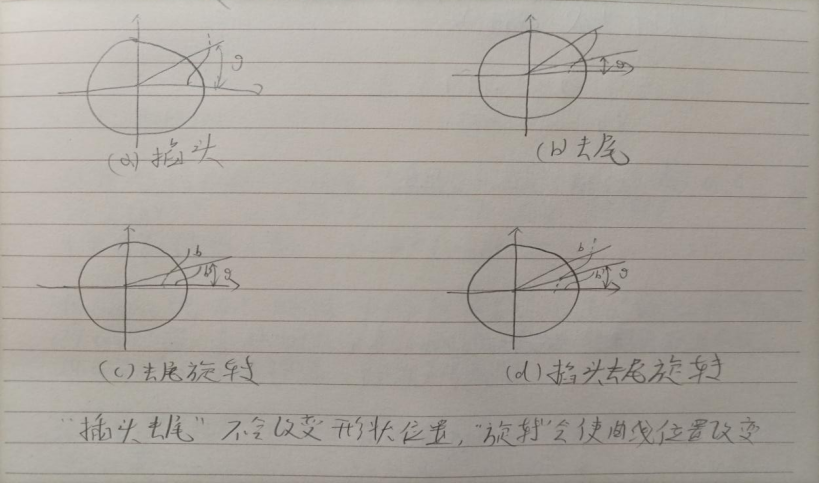 i g
g
(a) 掐头
(b) 去尾
b b' g
b i b' g
(c) 去尾旋转
(d) 掐头去尾旋转
"掐头去尾"不会改变形状位置,"旋转"会使曲线位置改变